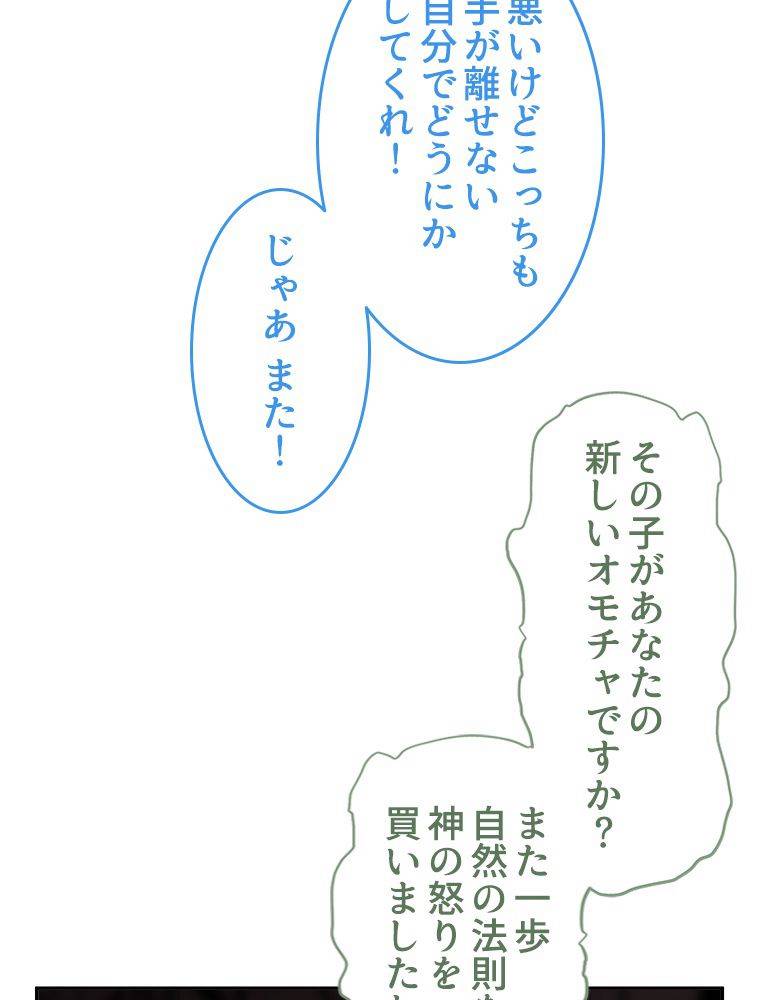 悪いけどこっちも
手が離せない
自分でどうにか
してくれ！
じゃあ また！
その子があなたの
新しいオモチャですか？
また一歩
自然の法則
神の怒りを
買いました